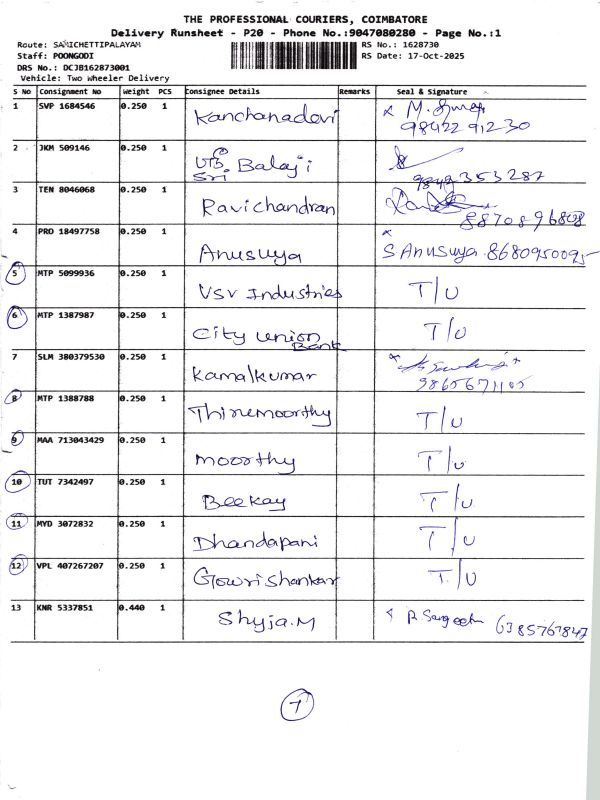 THE PROFESSIONAL COURIERS, COIMBATORE
Delivery Runsheet - P20 - Phone No.:9047080280 - Page No.:1
Route: SAMICHETTIPALAYAM
RS No.: 1628730
Staff: POONGODI
RS Date: 17-Oct-2025
DRS No.: DCJB162873001
Vehicle: Two Wheeler Delivery
S No Consignment No Weight PCS Consignee Details Remarks Seal & Signature
1 SVP 1684546 0.250 1 Kanchanadevi
98422 91230
2 JKM 509146 0.250 1 Sri Balaji
353287
3 TEN 8046068 0.250 1 Ravichandran
8870896808
4 PRD 18497758 0.250 1 Anusuya S Anusuya 8680950095
5 MTP 5099936 0.250 1 VSV Industries T/U
6 MTP 1387987 0.250 1 City Union Bank T/U
7 SLM 380379530 0.250 1 Kamalkumar
8 MTP 1388788 0.250 1 Thirumoorthy T/U
9 MAA 713043429 0.250 1 Moorthy T/U
10 TUT 7342497 0.250 1 Beekay T/U
11 MYD 3072832 0.250 1 Dhandapani T/U
12 VPL 407267207 0.250 1 Gowri Shankar T/U
13 KNR 5337851 0.440 1 Shyja.M 6385767847
7